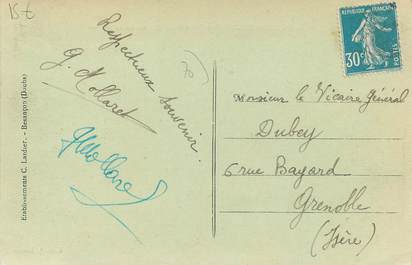 15 €
Respectueux souvenir.
G. Mollaret
GMollaret
Etablissements C. Lardier, - Besançon (Doubs)
RÉPUBLIQUE FRANÇAISE
30c
POSTES
Monsieur le Vicaire Général
Dubey
6 rue Bayard
Grenoble
(Isère)